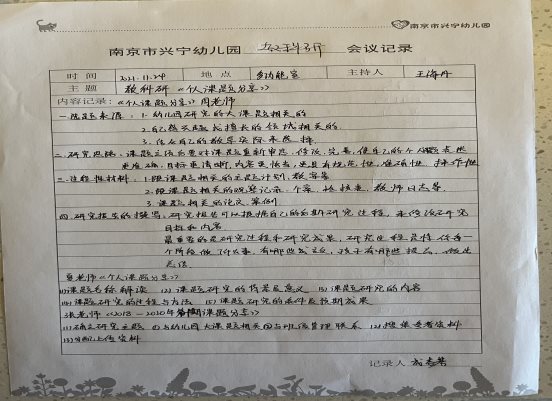 南京市兴宁幼儿园
南京市兴宁幼儿园 教科研 会议记录
时间 2021.11.29 地点 多功能室 主持人 王海丹
主题 教科研《个人课题分享》
内容记录:《个人课题分享》周老师
一.选题来源:1.幼儿园研究的大课题相关的
2.自己感兴趣或擅长的领域相关的
3.结合自己的教学实际来选择
二.研究思路:课题立项后要对课题重新审思、修改、完善,使自己的个人课题
更准确,目标更清晰,内容更恰当,更具有规范性、准确性、操作性
三.过程性材料:1.跟课题相关的主题计划、教案等
2.跟课题相关的观察记录、个案、教师日志等
3.课题相关的论文、案例
四.研究报告的撰写:研究报告可以根据自己的前期研究过程,来修改研究
目标和内容
最重要的是研究过程和研究成果,研究过程是将每一个
阶段做什么事,有哪些意义,孩子有哪些提高,做出
总结
老师《个人课题分享》
(1)课题名称解读 (2)课题研究的背景及意义 (3)课题研究的内容
(4)课题研究的过程与方法 (5)课题研究的条件及预期成果
张老师《2018-2020年 课题分享》
(1)确立研究主题 ①与幼儿园大课题相关②与班级管理联系 (2)搜集参考资料
(3)分配上传资料
记录人